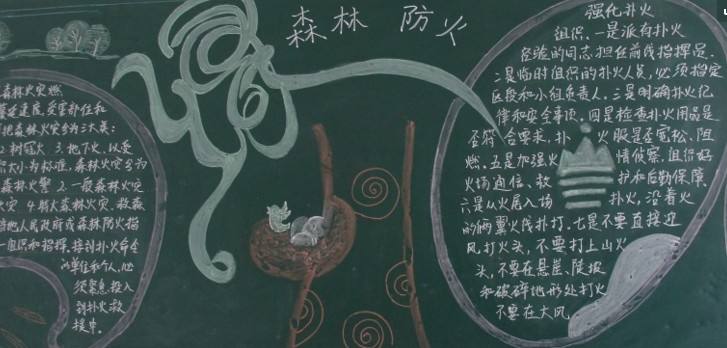 森林 防火
森林火灾燃
蔓延速度,受害部位和
地表森林火灾分为三大类:
2.树冠火 3.地下火,以受
积大小为标准,森林火灾分为
森林火警 2.一般森林火灾
火灾 4.特大森林火灾,救森
当地人民政府或森林防火指
一组织和指挥,接到扑火命令
的单位和个人,必
须紧急投入
到扑火救
援中。
强化扑火
组织。一是派有扑火
经验的同志担任前线指挥员。
二是临时组织的扑火人员,必须指定
区段和小组负责人。三是明确扑火纪
律和安全事项。四是检查扑火用品是
否符合要求,扑火服是否宽松、阻
燃。五是加强火情侦察,组织好
火场通信、救护和后勤保障。
六是从火尾入场扑火,沿着火
的俩翼火线扑打。七是不要直接迎
风打火头,不要打上山火
头,不要在悬崖、陡坡
和破碎地形处打火
不要在大风